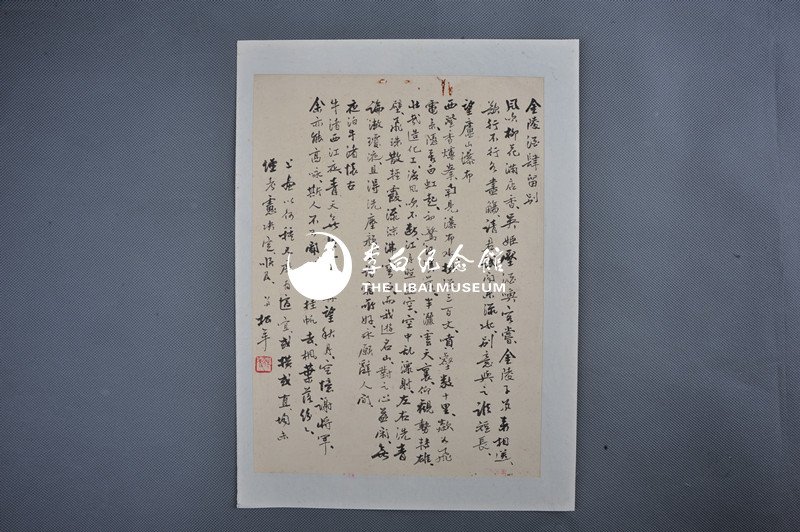 金陵酒肆留别
風吹柳花满店香、吴姬壓酒與客嘗、金陵子弟来相送、
欲行不行各盡觴、請君試問東流水、别意與之誰短長、
望廬山瀑布
西登香爐峯、南見瀑布水、挂流三百丈、噴壑數十里、歘如飛
電来、隱若白虹起、初驚河漢落、半灑雲天裏、仰觀勢轉雄、
壯哉造化工、海風吹不斷、江月照還空、空中亂潈射、左右洗青
壁、飛珠散輕霞、流沫沸穹石、而我遊名山、對之心益閑、無
論漱瓊液、且得洗塵顔、且諧宿所好、永願辭人間
夜泊牛渚懷古
牛渚西江夜、青天無望秋月、空憶謝將軍、
余亦能高詠、斯人不可聞、挂帆去、楓葉落紛々、
上以何種為宜或横或直均
決定
李白纪念馆
THE LIBAI MUSEUM